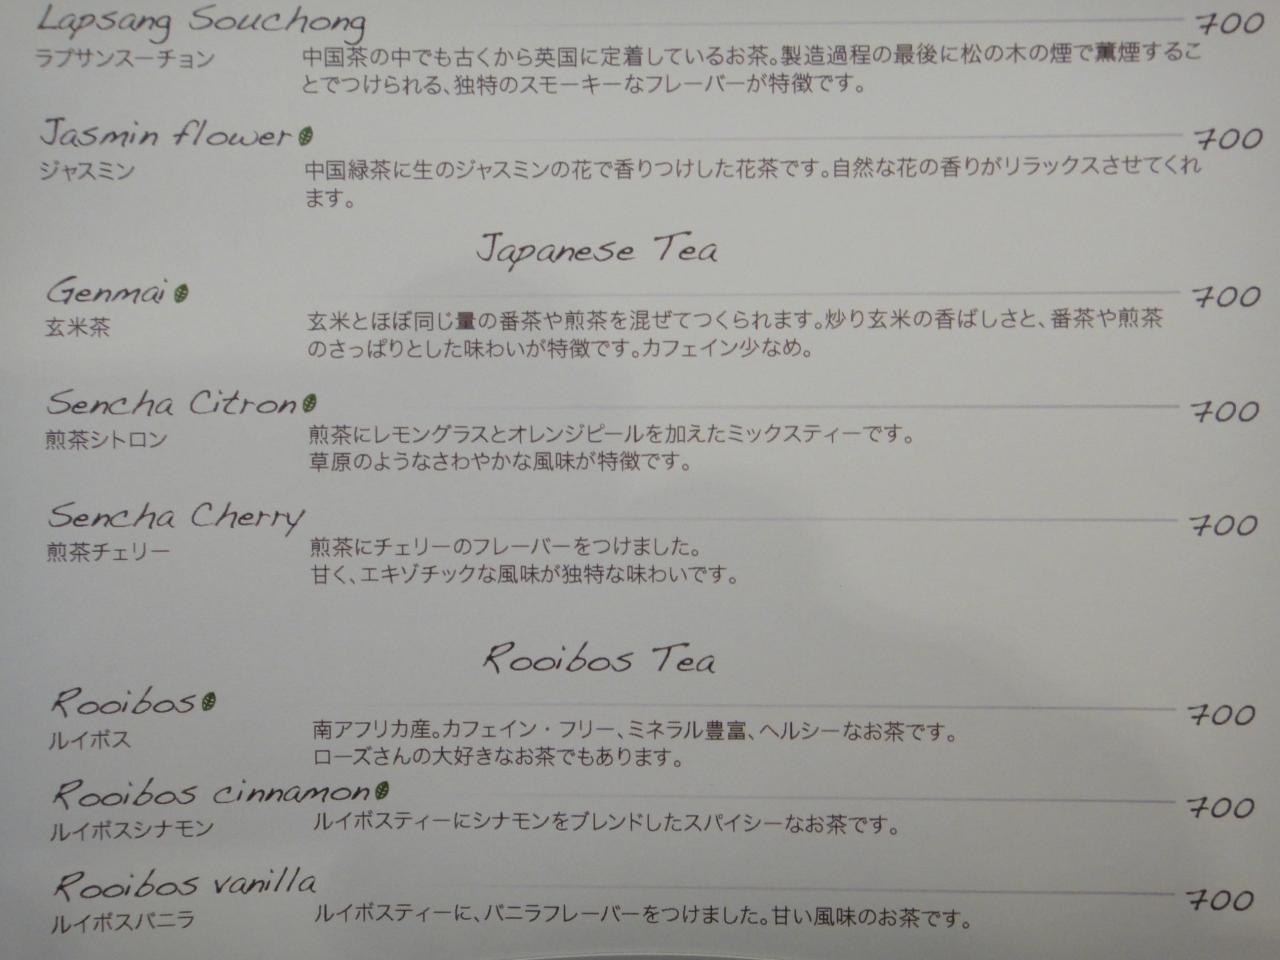 Lapsang Souchong 700
ラプサンスーチョン 中国茶の中でも古くから英国に定着しているお茶。製造過程の最後に松の木の煙で薫煙するこ
とでつけられる、独特のスモーキーなフレーバーが特徴です。
Jasmin flower 700
ジャスミン 中国緑茶に生のジャスミンの花で香りつけした花茶です。自然な花の香りがリラックスさせてくれ
ます。
Japanese Tea
Genmai 700
玄米茶 玄米とほぼ同じ量の番茶や煎茶を混ぜてつくられます。炒り玄米の香ばしさと、番茶や煎茶
のさっぱりとした味わいが特徴です。カフェイン少なめ。
Sencha Citron 700
煎茶シトロン 煎茶にレモングラスとオレンジピールを加えたミックスティーです。
草原のようなさわやかな風味が特徴です。
Sencha Cherry 700
煎茶チェリー 煎茶にチェリーのフレーバーをつけました。
甘く、エキゾチックな風味が独特な味わいです。
Rooibos Tea
Rooibos 700
ルイボス 南アフリカ産。カフェイン・フリー、ミネラル豊富、ヘルシーなお茶です。
ローズさんの大好きなお茶でもあります。
Rooibos cinnamon 700
ルイボスシナモン ルイボスティーにシナモンをブレンドしたスパイシーなお茶です。
Rooibos vanilla 700
ルイボスバニラ ルイボスティーに、バニラフレーバーをつけました。甘い風味のお茶です。